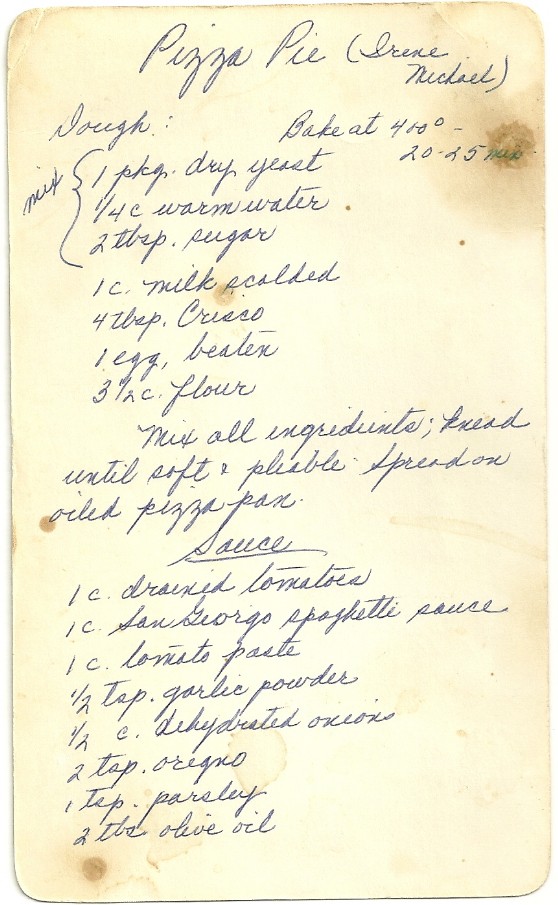 Pizza Pie (Irene
Michael)
Dough:
Bake at 400° -
20-25 min
mix
1 pkg. dry yeast
1/4 c warm water
2 tbsp. sugar
1 c. milk scalded
4 tbsp. Crisco
1 egg, beaten
3 1/2 c. flour
Mix all ingredients; knead
until soft & pliable. Spread on
oiled pizza pan.
Sauce
1 c. drained tomatoes
1 c. San Georgo spaghetti sauce
1 c. tomato paste
1/2 tsp. garlic powder
1/2 c. dehydrated onions
2 tsp. oregno
1 tsp. parsley
2 tbs olive oil